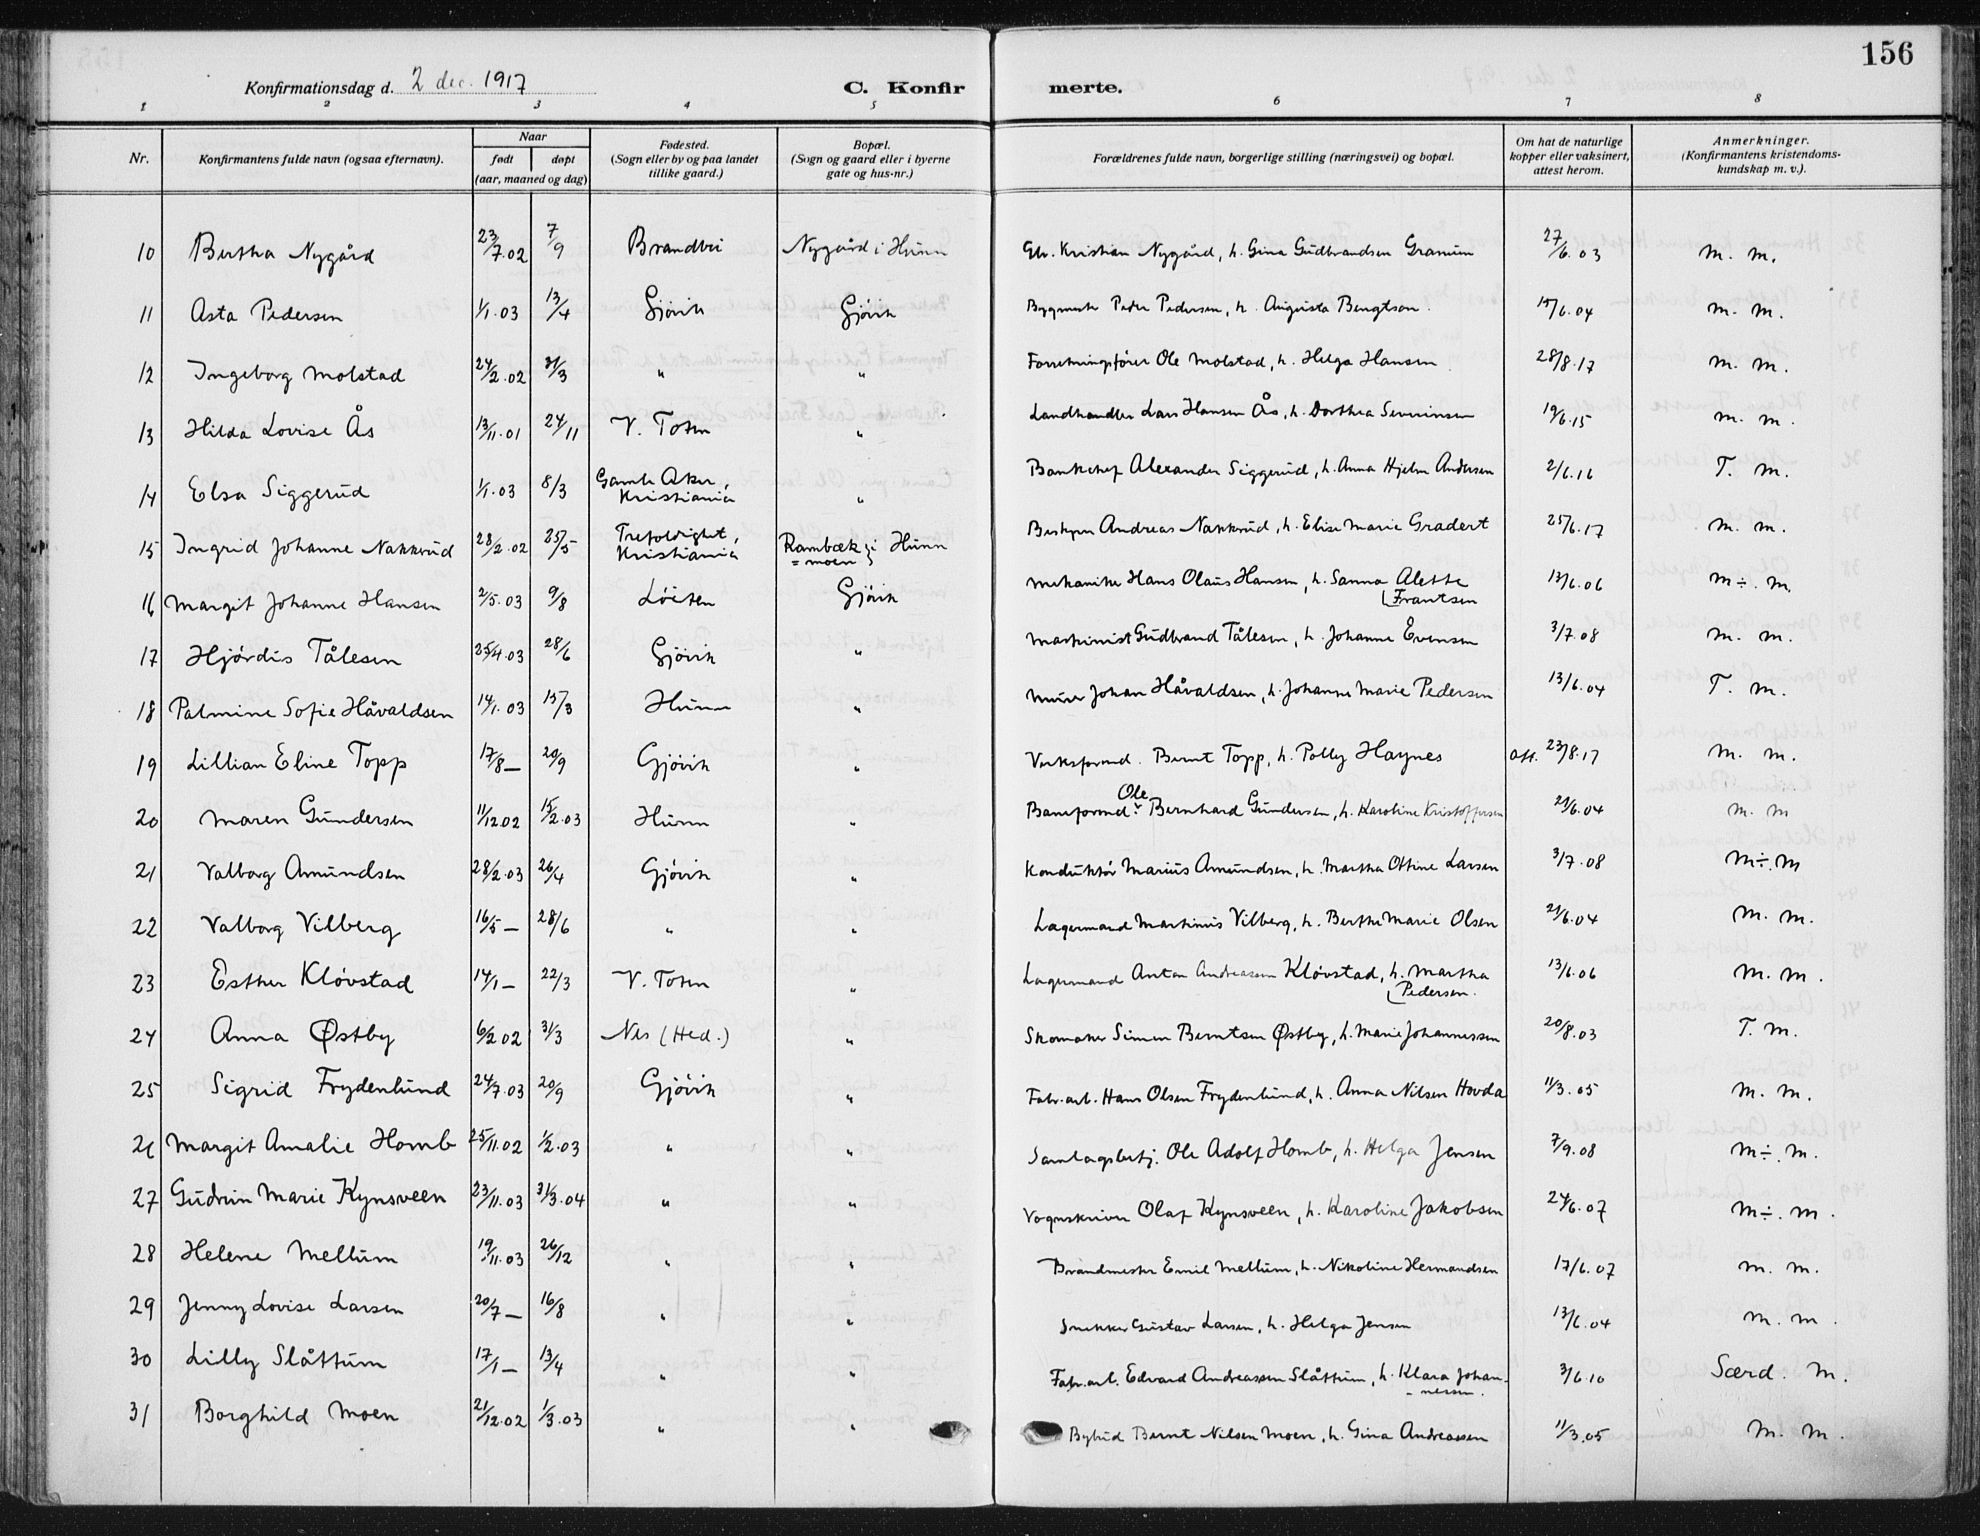 156
Konfirmationsdag d. 2 dec. 1917 C. Konfirmerte.
1 2 3 4 5 6 7 8
Nr. Konfirmantens fulde navn (ogsaa efternavn). Naar født døpt (aar, maaned og dag) Fødested. (Sogn eller by og paa landet tillike gaard.) Bopæl. (Sogn og gaard eller i byerne gate og hus-nr.) Forældrenes fulde navn, borgerlige stilling (næringsvei) og bopæl. Om hat de naturlige kopper eller vaksinert, attest herom. Anmerkninger. (Konfirmantens kristendoms-kundskap m. v.).
10 Bertha Nygård 23/7.02 7/9 Nygård i Hunn Kristian Nygård, h. Gina Gudbrandsen Granum 27/6.03 M. M.
11 Asta Pedersen 1/1.03 13/4 Gjövik Gjövik Bygmester Peder Pedersen, h. Augusta Bengtson. 15/6.04 M. M.
12 Ingeborg Molstad 24/2.02 31/3 " " Forretningsfører Ole Molstad, h. Helga Hansen 28/8.17 M. M.
13 Hilda Lovise Ås 13/11.01 24/11 V. Toten " Landhandler Lars Hansen Ås, h. Dorthea Severinsen 19/6.15 M. M.
14 Elsa Siggerud 1/1.03 8/3 Gamle Aker, Kristiania " Bankchef Alexander Siggerud, h. Anna Hjelm Andersen 2/6.16 T. M.
15 Ingrid Johanne Nakkerud 28/2.02 25/5 Trefoldighet, Kristiania Rambæk=moen i Hunn Andreas Nakkrud, h. Elise Marie Gradert 25/6.17 M. M.
16 Margit Johanne Hansen 2/5.03 9/8 Löiten Gjövik Mekaniker Hans Olaus Hansen, h. Sanna Alette Frantsen 13/6.06 M÷. M.
17 Hjördis Tålesen 25/4.03 28/6 Gjövik " Maskinist Gudbrand Tålesen, h. Johanne Evensen 3/7.08 M. M.
18 Palmine Sofie Håvaldsen 14/1.03 15/3 Hunn " Murer Johan Håvaldsen, h. Johanne Marie Pedersen 13/6.04 T. M.
19 Lillian Eline Topp 17/8 — 20/9 Gjövik " Verksformd. Bernt Topp, h. Polly Haynes att. 23/8.17 M. M.
20 Maren Gundersen 11/12.02 15/2.03 Hunn " Baneformd. Ole Bernhard Gundersen, h. Karoline Kristoffersen 21/6.04 M. M
21 Valborg Amundsen 28/2.03 26/4 Gjövik " Konduktör Marius Amundsen, h. Martha Ottine Larsen 3/7.08 M÷. M
22 Valborg Vilberg 16/5 — 28/6 " " Lagermand Martinus Vilberg, h. Berthe Marie Olsen 21/6.04 M. M.
23 Esther Kløvstad 14/1 — 22/3 V. Toten " Lagermand Anton Andreassen Kløvstad, h. Martha Pedersen. 13/6.06 M. M.
24 Anna Østby 6/2 02 31/3 Nes (Hed.) " Skomaker Simen Berntsen Østby, h. Marie Johannessen 20/8.03 T. M.
25 Sigrid Frydenlund 24/7.03 20/9 Gjövik " Fabr.arb. Hans Olsen Frydenlund, h. Anna Nilsen Hovda 11/3.05 M. M.
26 Margit Amalie Homb 25/11.02 1/2.03 " " Samlagsbetj. Ole Adolf Homb, h. Helga Jensen 7/9.08 M÷. M.
27 Gudrun Marie Kynsveen 23/11.03 31/3.04 " " Vognskriver Olaf Kynsveen, h. Karoline Jakobsen 24/6.07 M÷. M.
28 Helene Mellum 19/11.03 26/12 " " Brandmester Emil Mellum, h. Nikoline Hermandsen 17/6.07 M. M.
29 Jenny Lovise Larsen 20/7 — 16/8 " " Snekker Gustav Larsen, h. Helga Jensen 13/6.04 M. M.
30 Lilly Slåttum 17/1 — 13/4 " " Fabr.arb. Edvard Andreassen Slåttum, h. Klara Johan-nessen. 3/6.10 Særd. M.
31 Borghild Moen 21/12.02 1/3.03 " " Bybud Bernt Nilsen Moen, h. Gina Andreassen 11/3.05 M. M.